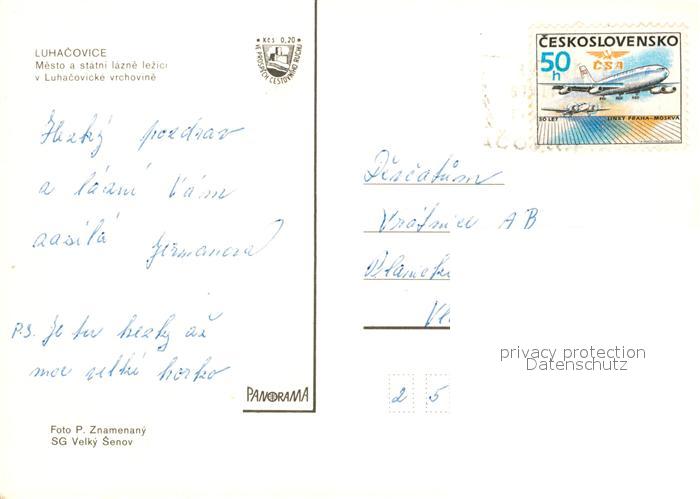 LUHAČOVICE
Město a státní lázně ležící
v Luhačovické vrchovině
Kčs 0,20
VE PROSPĚCH CESTOVNÍHO RUCHU
ČESKOSLOVENSKO
50 h
ČSA
50 LET LINKY PRAHA-MOSKVA
Hezký pozdrav
z lázní Vám
zasílá Germanová
P.S. Je tu hezky až
moc velké horko
Děvčatům
Vrátnice AB
PANORAMA
2 5
Foto P. Znamenaný
SG Velký Šenov
privacy protection
Datenschutz